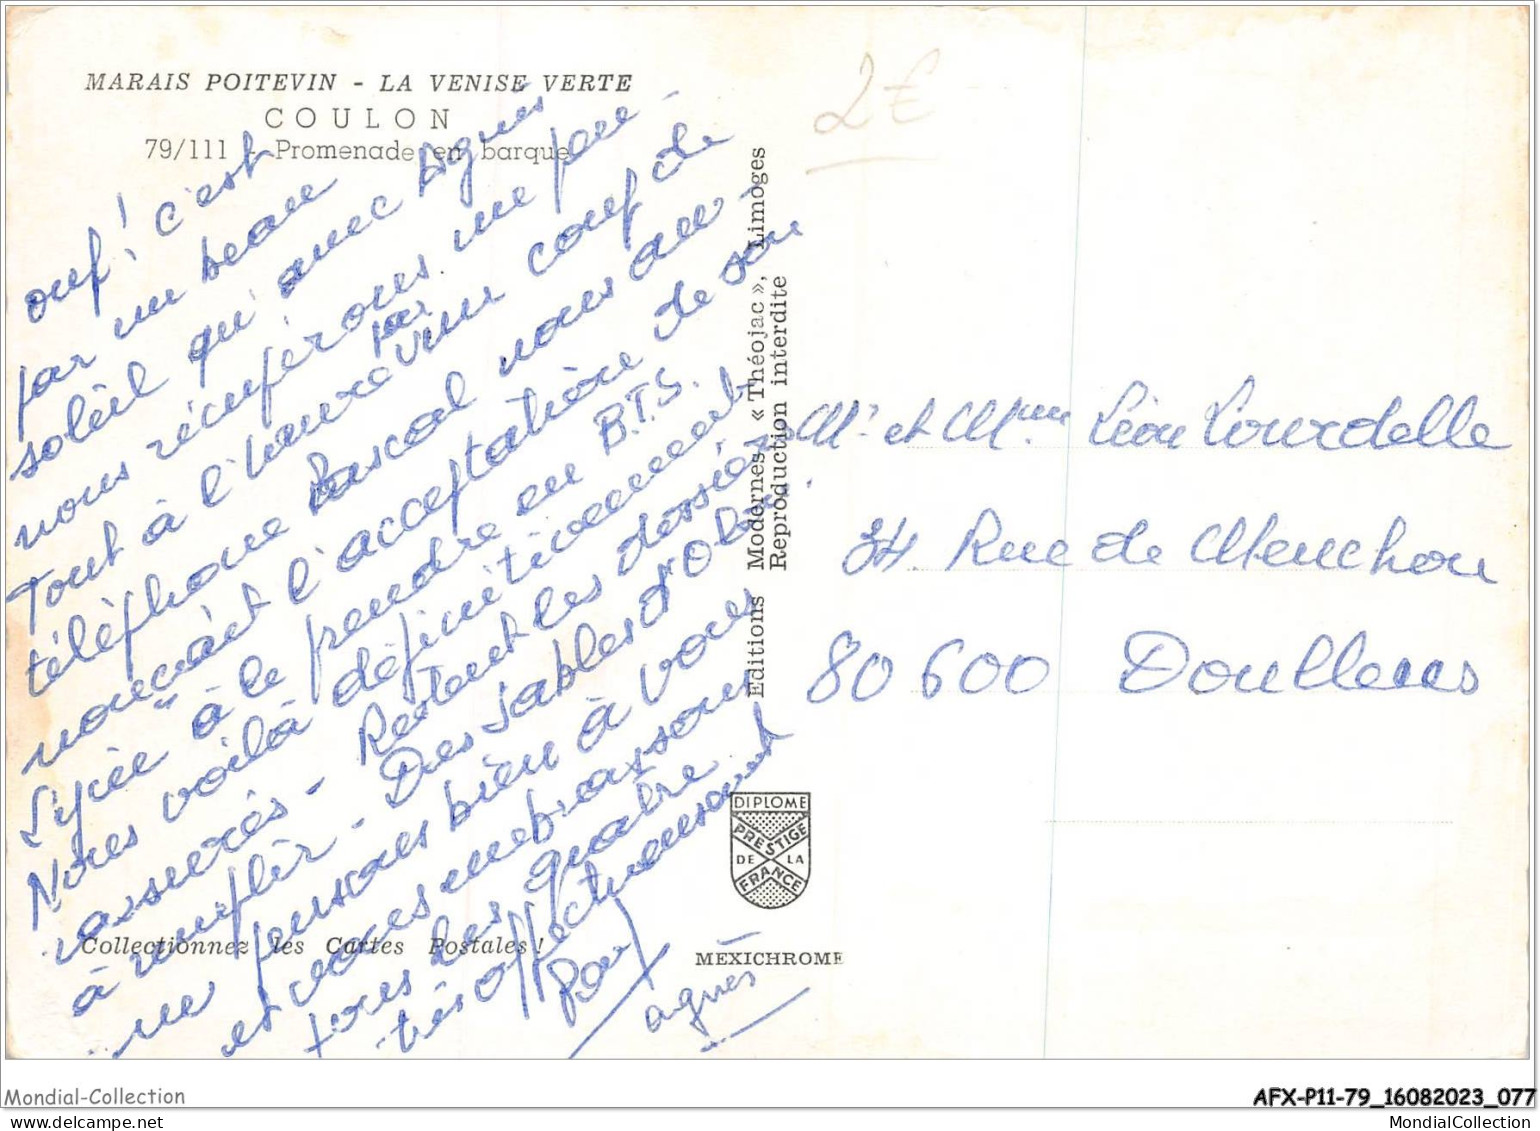 MARAIS POITEVIN - LA VENISE VERTE
COULON
79/111 - Promenade en barque
2€
ouf! c'est
par un beau
soleil qu'avec Agnès
nous récupérons un peu
Tout à l'heure par un coup de
téléphone Pascal nous an-
nonçait l'acceptation de son
Lycée à le prendre en B.T.S.
Nous voilà définitivement
rassurés - Restent les dossiers
à remplir - Des Sables d'Olonne
je pensais bien à vous
et vous embrassons
tous les quatre
très affectueusement
Paul
agnès
Editions Modernes « Théojac », Limoges
Reproduction interdite
Mr et Mme Léon Lourdelle
34 Rue de Menchon
80600 Doullens
DIPLOME
PRESTIGE
DE LA
FRANCE
Collectionnez les Cartes Postales !
MEXICHROME
Mondial-Collection
AFX-P11-79_16082023_077
MondialCollection